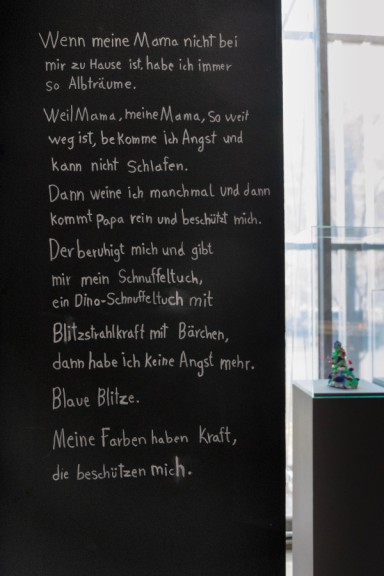 Wenn meine Mama nicht bei
mir zu Hause ist, habe ich immer
so Albträume.
Weil Mama, meine Mama, so weit
weg ist, bekomme ich Angst und
kann nicht schlafen.
Dann weine ich manchmal und dann
kommt Papa rein und beschützt mich.
Der beruhigt mich und gibt
mir mein Schnuffeltuch,
ein Dino-Schnuffeltuch mit
Blitzstrahlkraft mit Bärchen,
dann habe ich keine Angst mehr.
Blaue Blitze.
Meine Farben haben Kraft,
die beschützen mich.